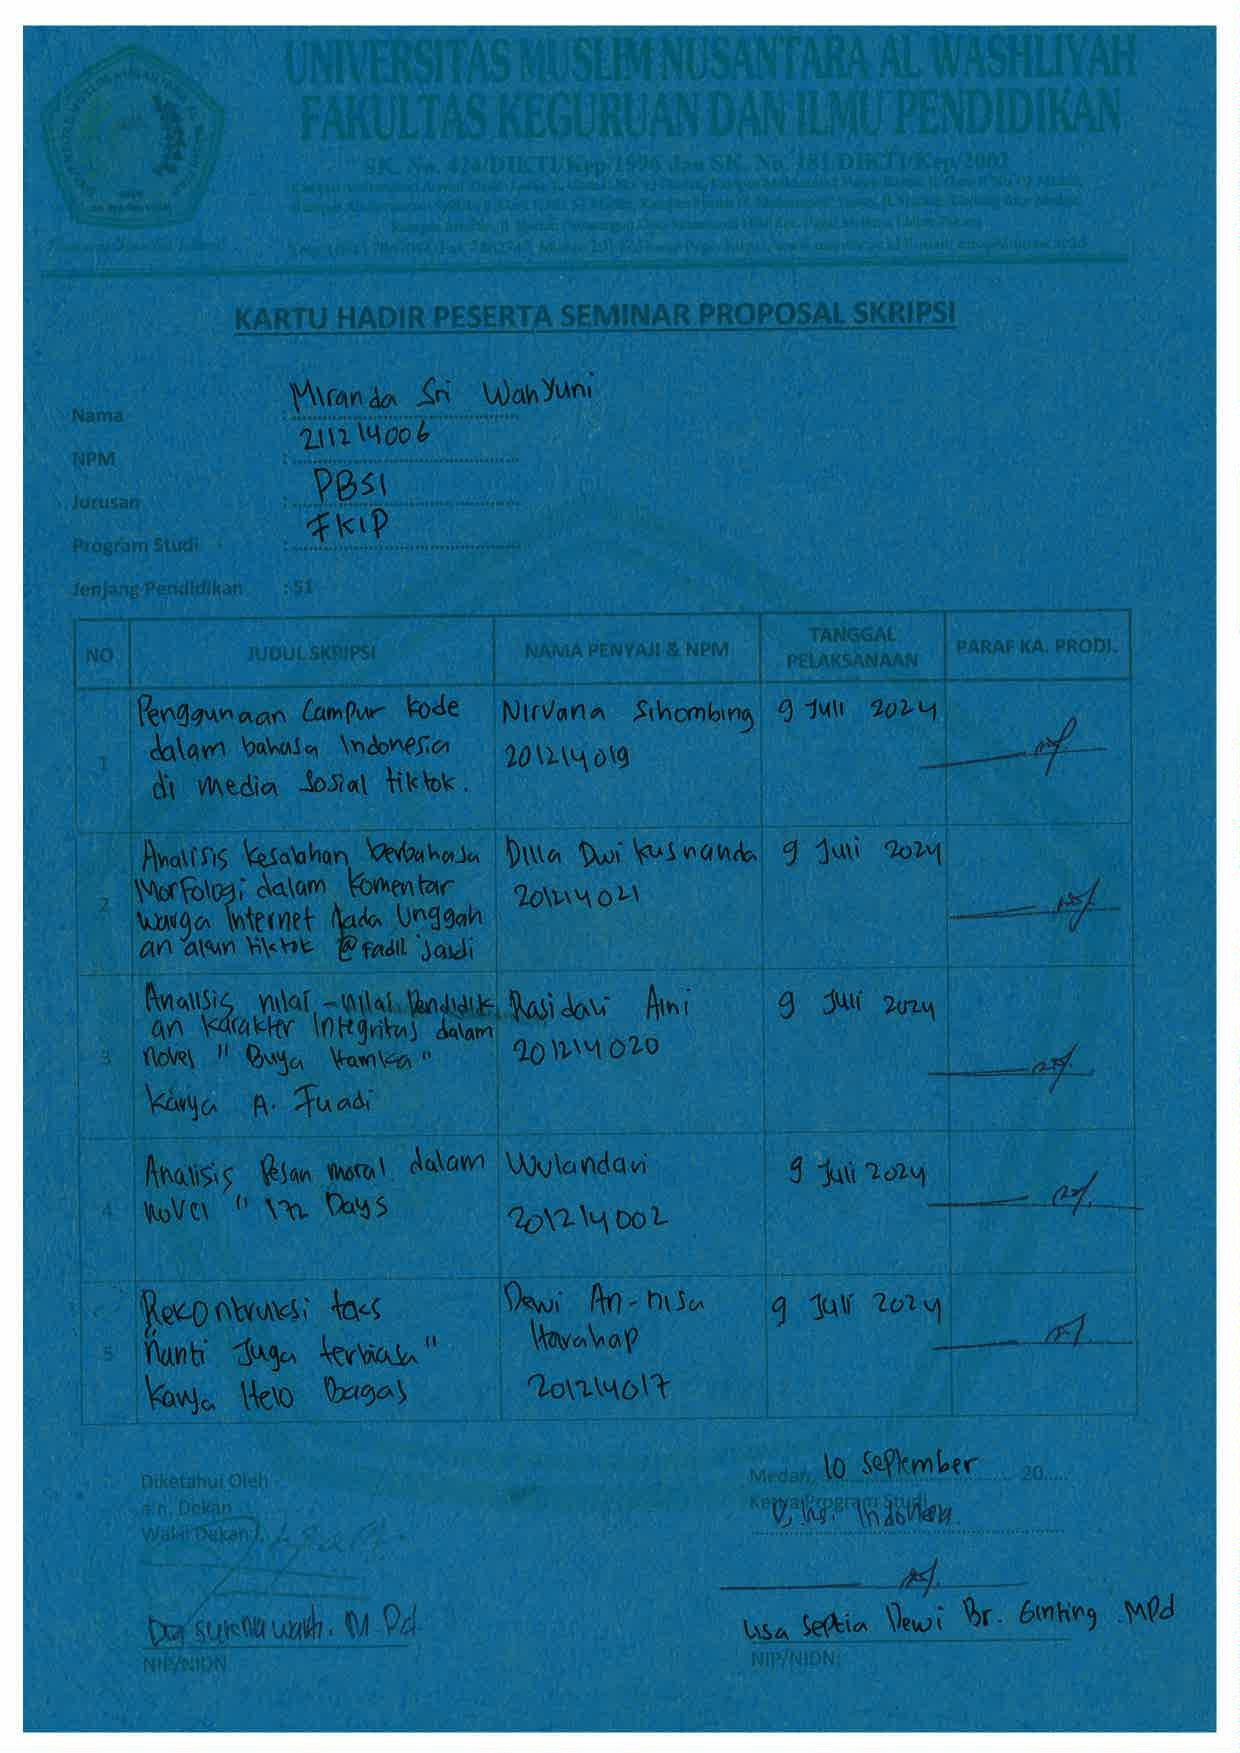 UNIVERSITAS MUSLIM NUSANTARA AL WASHLIYAH
FAKULTAS KEGURUAN DAN ILMU PENDIDIKAN
SK. No. 424/DIKTI/Kep/1996 dan SK. No. 181/DIKTI/Kep/2002
KARTU HADIR PESERTA SEMINAR PROPOSAL SKRIPSI
Nama : Miranda Sri Wahyuni
NPM : 211214006
Jurusan : PBSI
Program Studi : FKIP
Jenjang Pendidikan : S1
NO JUDUL SKRIPSI NAMA PENYAJI & NPM TANGGAL PELAKSANAAN PARAF KA. PRODI.
1 Penggunaan Campur kode
dalam bahasa Indonesia
di media Sosial tiktok.
Nirvana Sihombing
201214019
9 Juli 2024
2 Analisis kesalahan berbahasa
Morfologi dalam komentar
warga Internet Pada Unggah
an akun tiktok @fadil jaidi
Dilla Dwi Kusnanda
201214021
9 Juli 2024
3 Analisis nilai-nilai Pendidik
an karakter Integritas dalam
novel "Buya Hamka"
Karya A. Fuadi
Rasidah Aini
201214020
9 Juli 2024
4 Analisis Pesan moral dalam
novel "172 Days
Wulandari
201214002
9 Juli 2024
5 Rekontruksi teks
"Nanti Juga terbiasa"
Karya Helo Bagas
Dewi An-nisa
Harahap
201214017
9 Juli 2024
Diketahui Oleh
a.n. Dekan
Wakil Dekan I.
M.Pd.
NIP/NIDN
Medan, 10 September 20.....
Ketua Program Studi
Indonesia.
Lisa Septia Dewi Br. Ginting .MPd
NIP/NIDN: